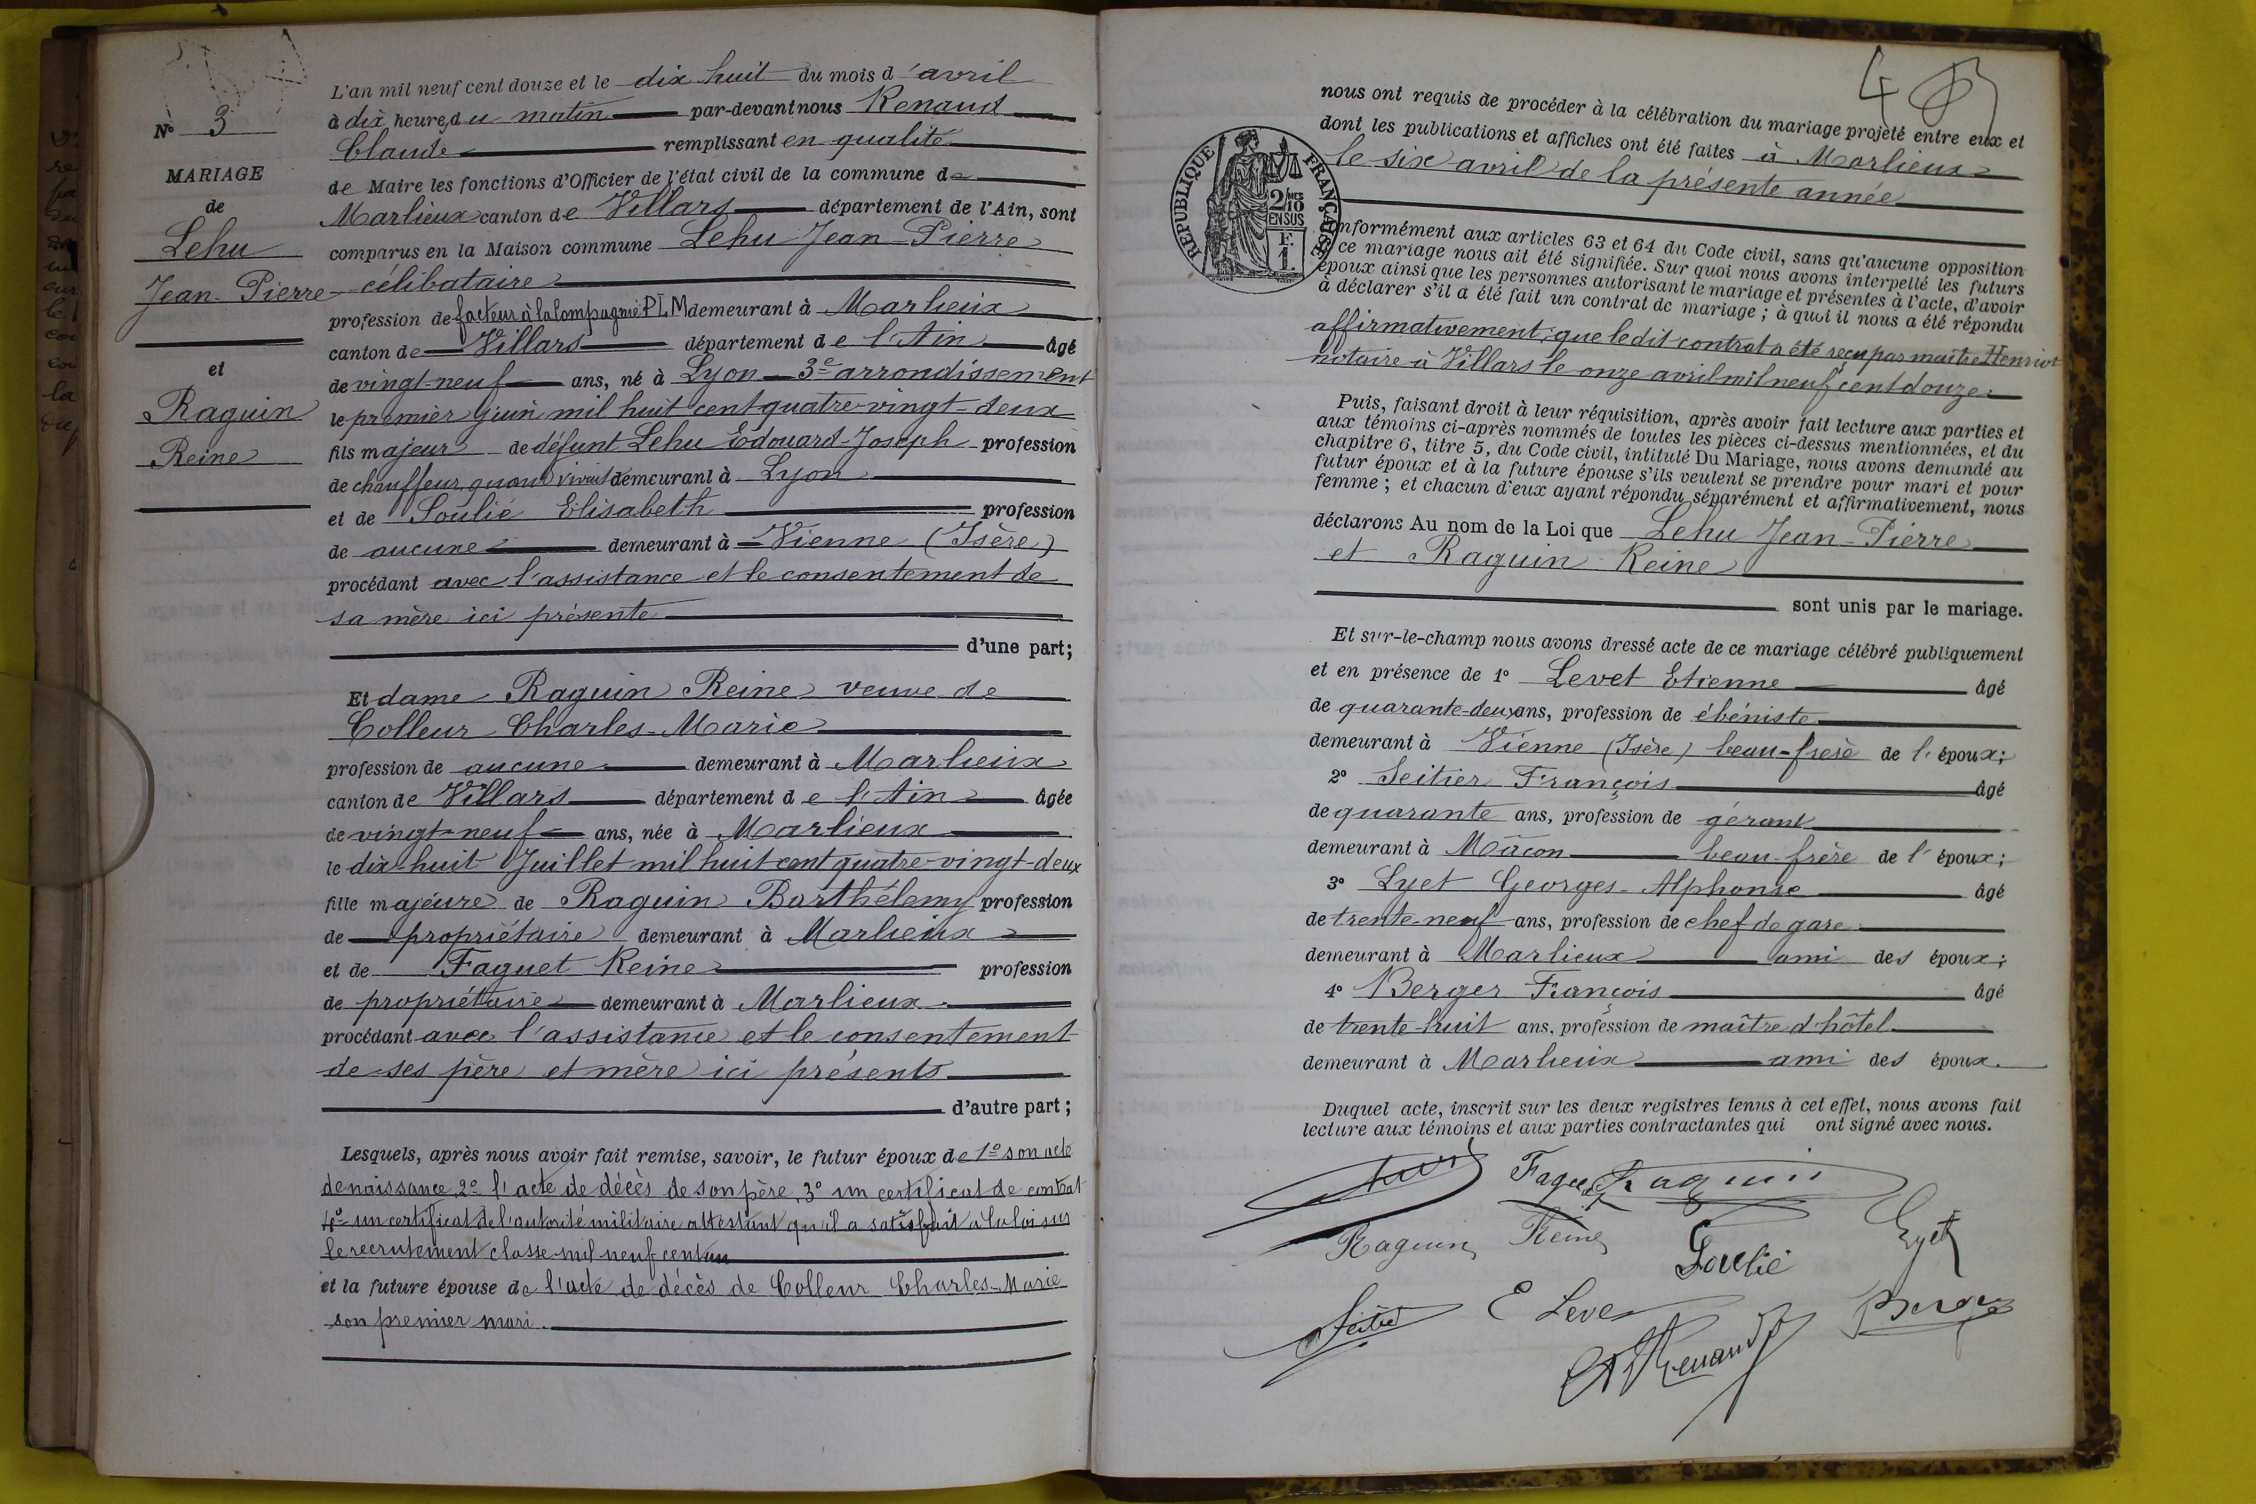 N° 3
MARIAGE
de
Lehu
Jean-Pierre
et
Raguin
Reine
L'an mil neuf cent douze et le dix huit du mois d'avril
à dix heures du matin par-devant nous Renaud
Claude remplissant en qualité
de Maire les fonctions d'Officier de l'état civil de la commune de
Marlieux canton de Villars département de l'Ain, sont
comparus en la Maison commune Lehu Jean-Pierre
célibataire
profession de facteur à la Compagnie PLM demeurant à Marlieux
canton de Villars département de l'Ain âgé
de vingt-neuf ans, né à Lyon 3e arrondissement
le premier juin mil huit cent quatre-vingt-deux
fils majeur de défunt Lehu Edouard-Joseph profession
de chauffeur quand vivait demeurant à Lyon
et de Soulié Elisabeth profession
de aucune demeurant à Vienne (Isère)
procédant avec l'assistance et le consentement de
sa mère ici présente
d'une part;
Et dame Raguin Reine veuve de
Colleur Charles-Marie
profession de aucune demeurant à Marlieux
canton de Villars département de l'Ain âgée
de vingt-neuf ans, née à Marlieux
le dix-huit Juillet mil huit cent quatre-vingt-deux
fille majeure de Raguin Barthélemy profession
de propriétaire demeurant à Marlieux
et de Faguet Reine profession
de propriétaire demeurant à Marlieux
procédant avec l'assistance et le consentement
de ses père et mère ici présents
d'autre part;
Lesquels, après nous avoir fait remise, savoir, le futur époux de 1° son acte
de naissance, 2° l'acte de décès de son père, 3° un certificat de contrat
4° un certificat de l'autorité militaire attestant qu'il a satisfait à la loi sur
le recrutement classe mil neuf cent un
et la future épouse de l'acte de décès de Colleur Charles-Marie
son premier mari.
4
nous ont requis de procéder à la célébration du mariage projeté entre eux et
dont les publications et affiches ont été faites à Marlieux
le six avril de la présente année
RÉPUBLIQUE FRANÇAISE
2/10 MES
EN SUS
F.
1
nformément aux articles 63 et 64 du Code civil, sans qu'aucune opposition
ce mariage nous ait été signifiée. Sur quoi nous avons interpellé les futurs
époux ainsi que les personnes autorisant le mariage et présentes à l'acte, d'avoir
à déclarer s'il a été fait un contrat de mariage; à quoi il nous a été répondu
affirmativement; que le dit contrat a été reçu par maître Henriot
notaire à Villars le onze avril mil neuf cent douze.
Puis, faisant droit à leur réquisition, après avoir fait lecture aux parties et
aux témoins ci-après nommés de toutes les pièces ci-dessus mentionnées, et du
chapitre 6, titre 5, du Code civil, intitulé Du Mariage, nous avons demandé au
futur époux et à la future épouse s'ils veulent se prendre pour mari et pour
femme; et chacun d'eux ayant répondu séparément et affirmativement, nous
déclarons Au nom de la Loi que Lehu Jean-Pierre
et Raguin Reine
sont unis par le mariage.
Et sur-le-champ nous avons dressé acte de ce mariage célébré publiquement
et en présence de 1° Levet Etienne âgé
de quarante-deux ans, profession de ébéniste
demeurant à Vienne (Isère) beau-frère de l'époux;
2° Seitier François âgé
de quarante ans, profession de gérant
demeurant à Mâcon beau-frère de l'époux;
3° Lyet Georges-Alphonse âgé
de trente-neuf ans, profession de chef de gare
demeurant à Marlieux ami des époux;
4° Berger François âgé
de trente-huit ans, profession de maître d'hôtel
demeurant à Marlieux ami des époux.
Duquel acte, inscrit sur les deux registres tenus à cet effet, nous avons fait
lecture aux témoins et aux parties contractantes qui ont signé avec nous.
Faguet Raguin
Raguin Reine
Soulié Lyet
Seitier E Levet Berger
Renaud